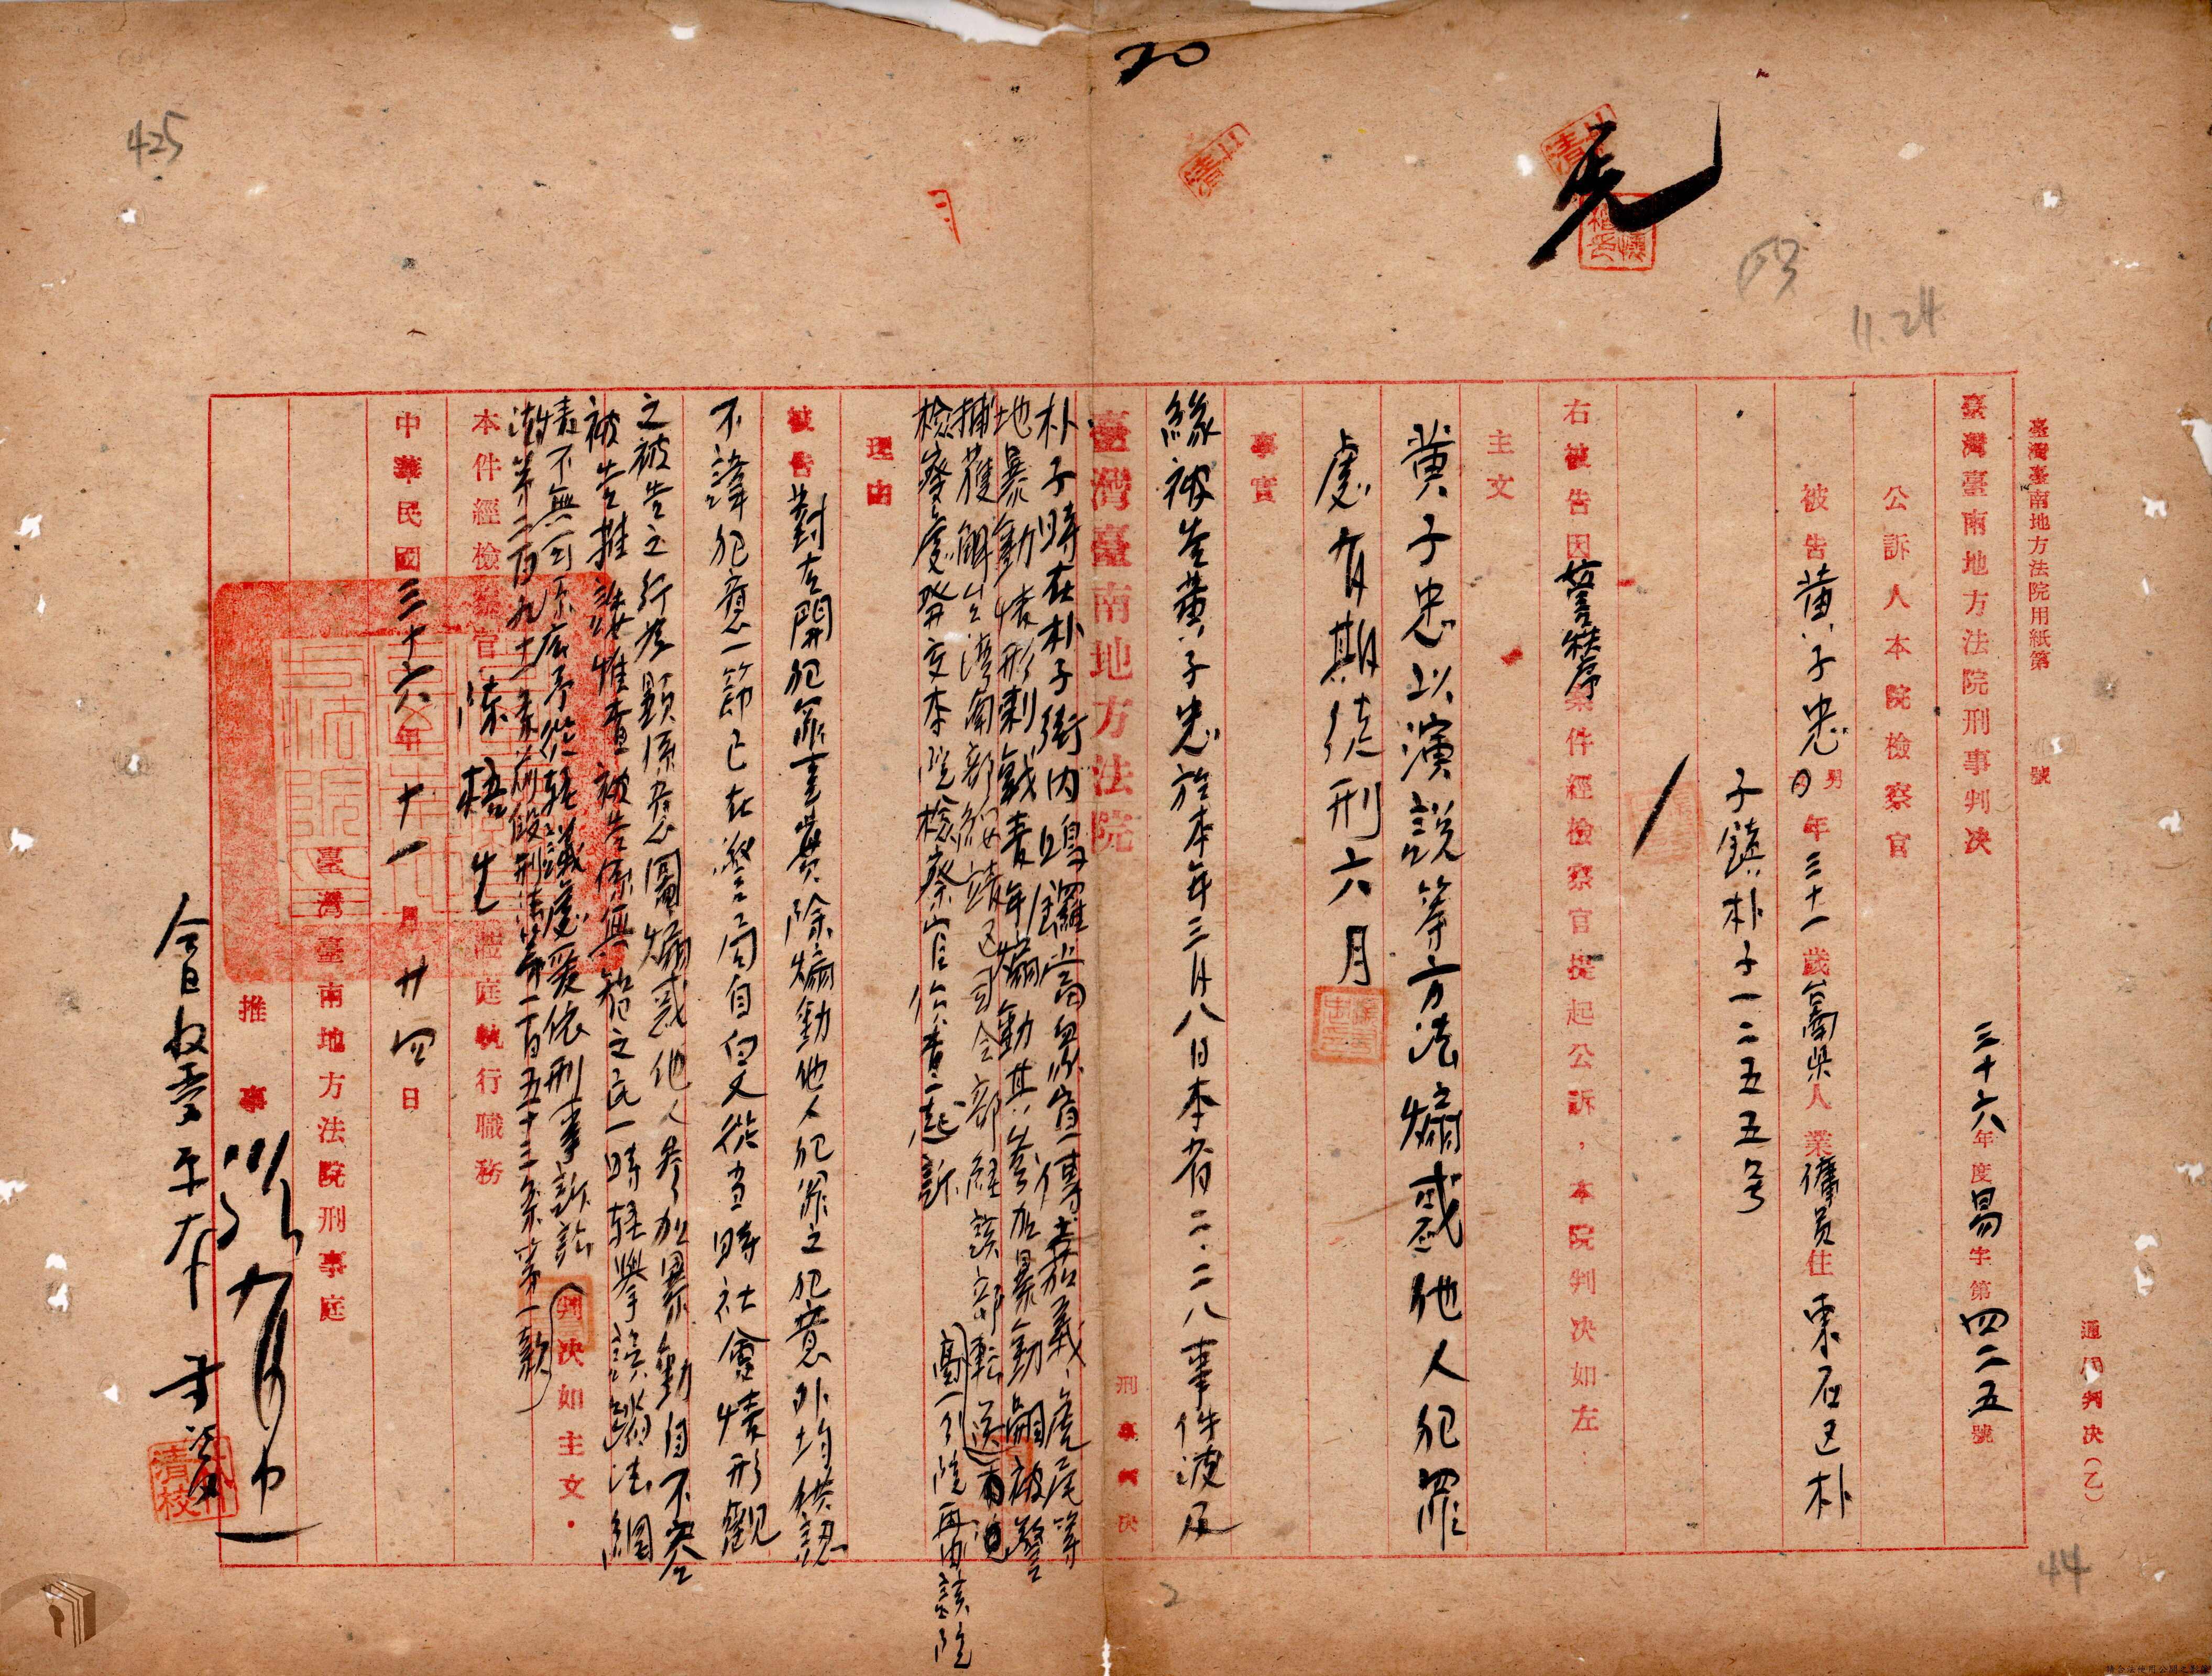 臺灣臺南地方法院用紙第　號
通用判決(乙)
臺灣臺南地方法院刑事判決　三十六年度易字第四二五號
公訴人本院檢察官
被告黃子忠男年三十一歲台南県人業僱員住東石区朴
子鎮朴子一二五五号
右被告因妨害秩序案件經檢察官提起公訴，本院判決如左：
主文
黃子忠以演說等方法煽惑他人犯罪
處有期徒刑六月
事實
緣被告黃子忠於本年三月八日本省二.二八事件波及
臺灣臺南地方法院　刑事判決
朴子時在朴子街內鳴鑼當眾宣傳嘉義、虎尾等
地暴動情形刺戟青年煽動其參加暴動嗣被警
捕獲解台湾南部綏靖区司令部経該部転送
高一分院再由該院
檢察處發交本院檢察官偵查起訴
理由
被告對左開犯罪事實除煽動他人犯罪之犯意外均供認
不諱犯意一節已在警局自白又從当時社會情形觀
之被告之行為顯係意圖煽惑他人參加暴動自不容
被告推諉惟查被告係無智之民一時輕舉誤蹈法網
情不無可原應予從輕議處爰依刑事訴訟
法第二百九十一条前段刑法第一百五十三条第一款
判決如主文．
本件經檢察官陳梧生蒞庭執行職務
中華民國三十六年十一月廿四日
臺灣臺南地方法院刑事庭
推事
今日收受正本
20
425
11.24
44
2
清校